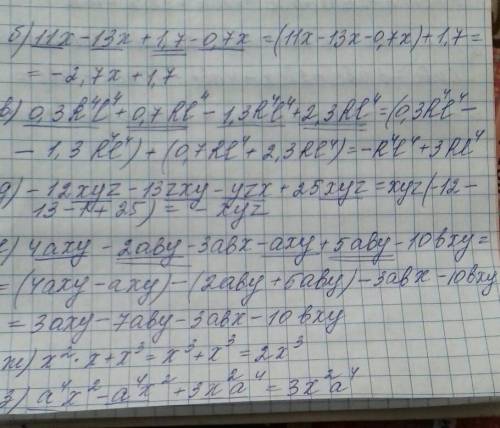 б) 11x - 13x + 1,7 - 0,7x = (11x - 13x - 0,7x) + 1,7 =
= -2,7x + 1,7
в) 0,3R⁴l⁴ + 0,7Rl⁴ - 1,3R⁴l⁴ + 2,3Rl⁴ = (0,3R⁴l⁴ -
- 1,3R⁴l⁴) + (0,7Rl⁴ + 2,3Rl⁴) = -R⁴l⁴ + 3Rl⁴
д) -12xyz - 13zxy - yzx + 25xyz = xyz(-12 -
13 - 1 + 25) = - xyz
е) 4axy - 2aвy - 3aвx - axy + 5aвy - 10вxy =
= (4axy - axy) - (2aвy + 5aвy) - 3aвx - 10вxy
= 3axy - 7aвy - 3aвx - 10вxy
ж) x² · x + x³ = x³ + x³ = 2x³
з) a⁴x² - a⁴x² + 3x²a⁴ = 3x²a⁴